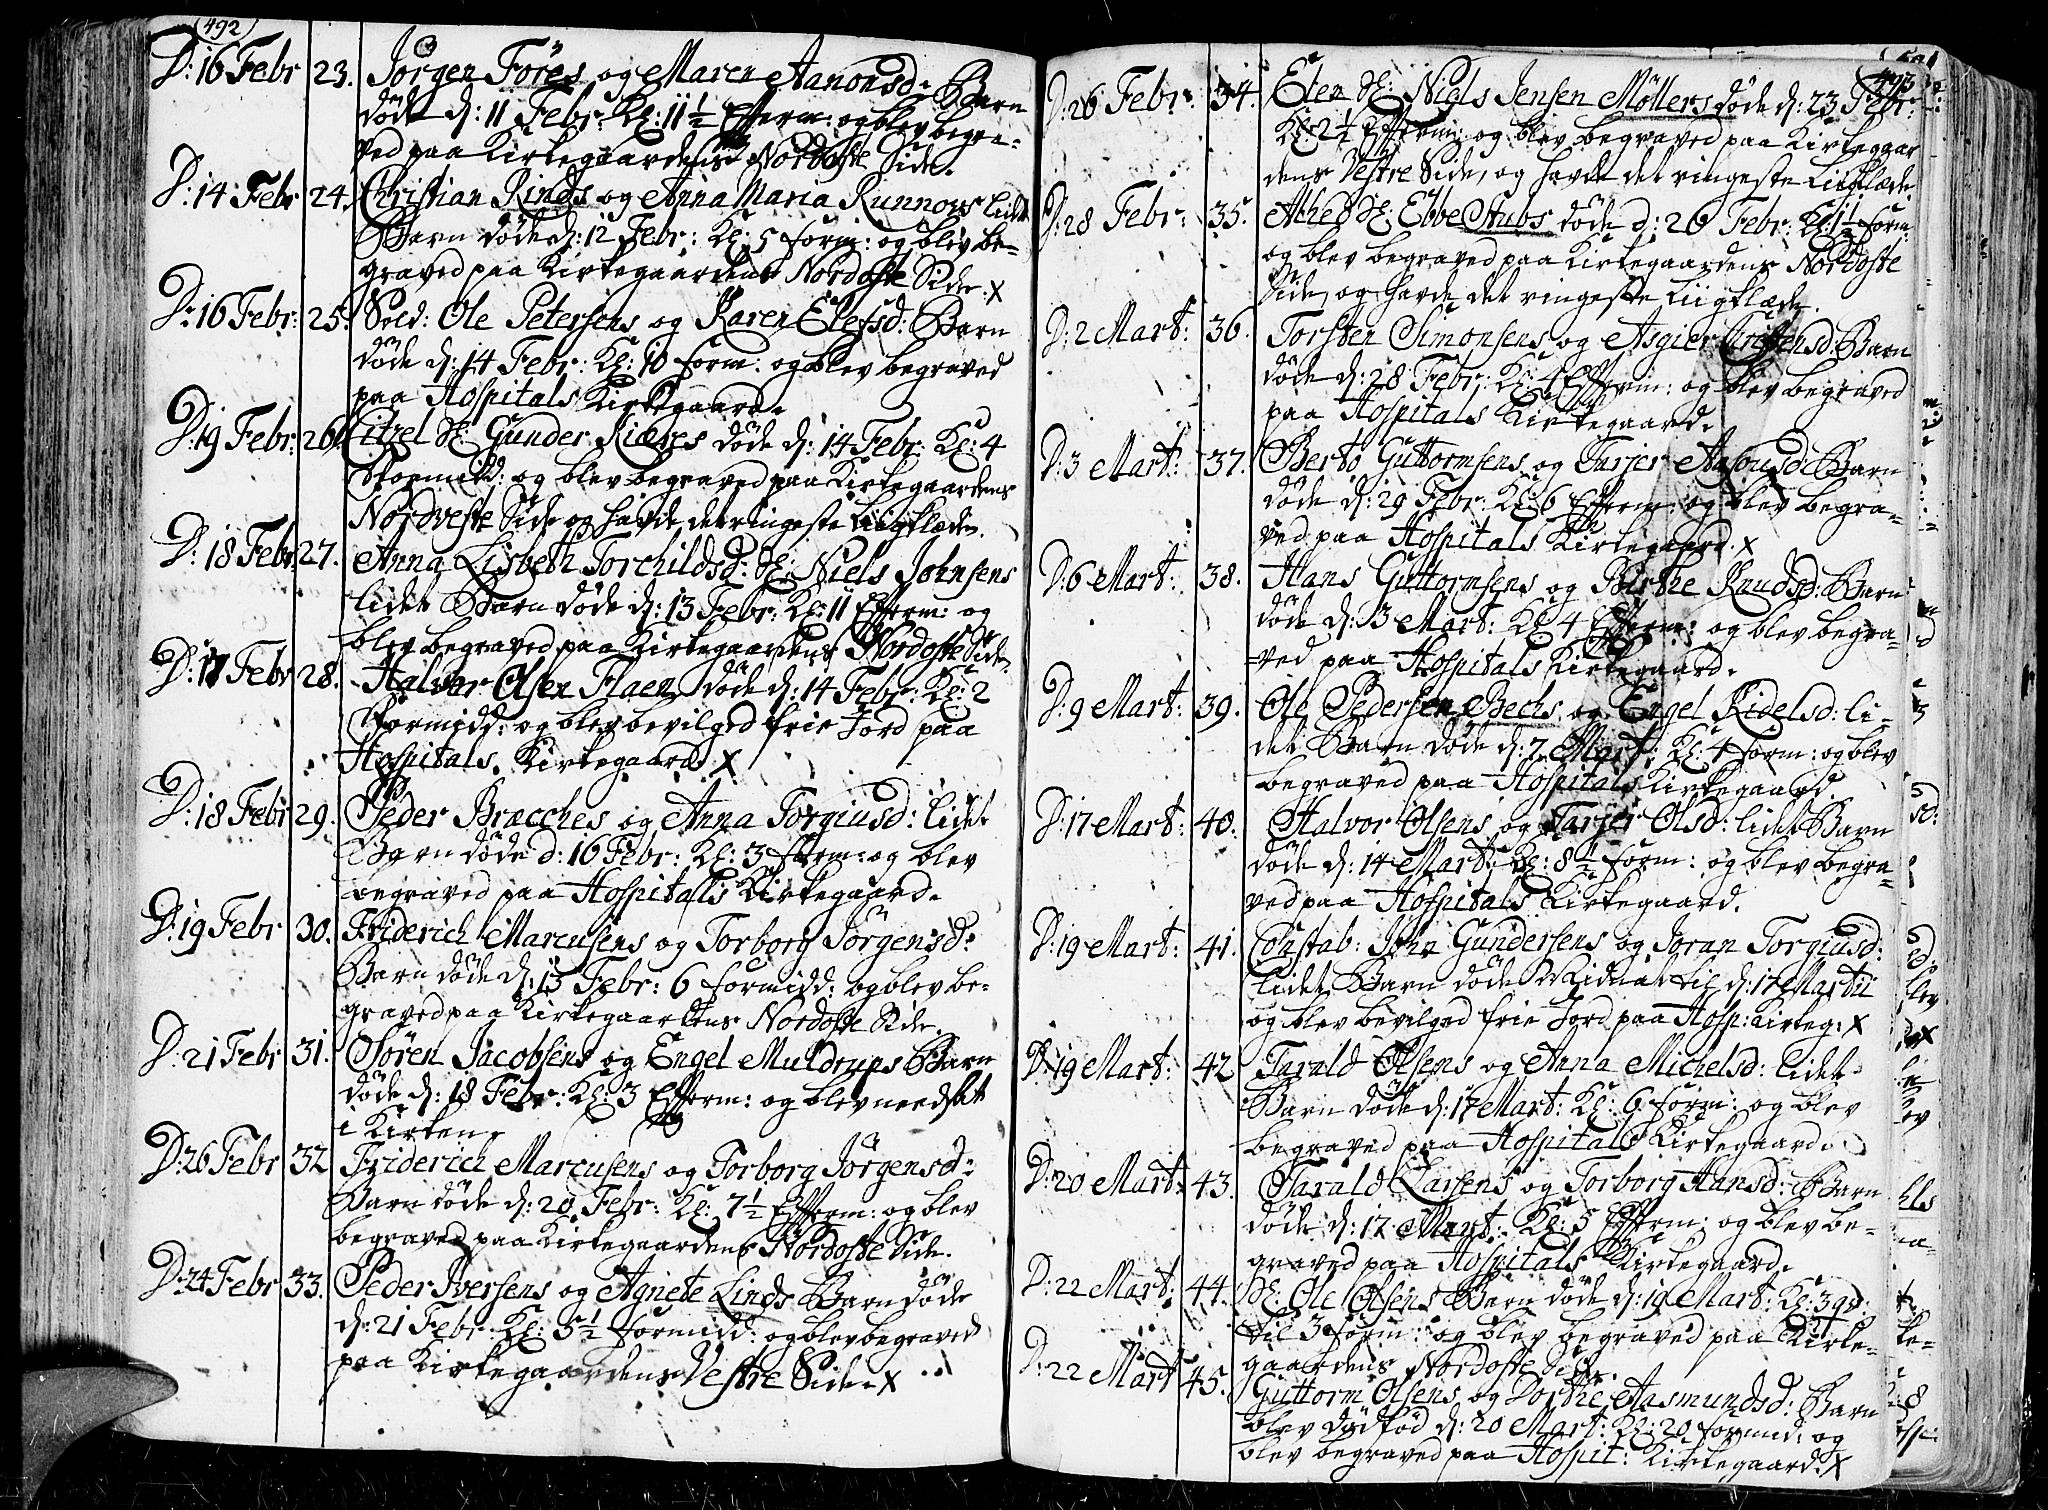 492
D: 16 Febr 23. Jörgen Föres og Maren Aanonsd: Barn
döde d: 11 Febr: Kl: 11½ Efterm: og blev begra-
ved paa Kirkegaardens Nordoste Side.
D: 14 Febr 24. Christian Rinds og Anna Maria Runnovs lidet
Barn döde d: 12 Febr: Kl: 5 form: og blev be-
graved paa Kirkegaardens Nordoste Side: X
D: 16 Febr: 25. Sold: Ole Petersens og Karen Elefsd: Barn
döde d: 14 Febr: Kl: 10 form: og blev begraved
paa Hospitals Kirkegaard.
D: 19 Febr: 26. Citzel Sl: Gunder Kiæres döde d: 14 Febr: Kl: 4
formidd: og blev begraved paa Kirkegaardens
Nordveste Side og havde det ringeste Liigklæde.
D: 18 Febr 27. Anna Lisbeth Torchildsd: Sl: Niels Johnsens
lidet Barn döde d: 13 Febr: Kl: 11 Efterm: og
blev begraved paa Kirkegaardens Nordoste Side.
D: 17 Febr 28. Halvor Olsen Flaen döde d: 14 Febr: Kl: 2
formidd: og blev bevilged frie Jord paa
Hospitals Kirkegaard X
D: 18 Febr 29. Peder Bracches og Anna Torgiusd: lidet
Barn döde d: 16 Febr: Kl: 3 form: og blev
begraved paa Hospitals Kirkegaard.
D: 19 Febr 30. Friderich Marcusens og Torborg Jörgensd:
Barn döde d: 13 Febr: 6 formidd: og blev be-
graved paa Kirkegaardens Nordoste Side.
D: 21 Febr 31. Sören Jacobsens og Engel Muldrups Barn
döde d: 18 Febr: Kl: 3 Efterm: og blev needsat
i Kirken.
D: 26 Febr 32 Friderich Marcusens og Torborg Jörgensd:
Barn döde d: 20 Febr: Kl: 7½ Efterm: og blev
begraved paa Kirkegaardens Nordoste Side.
D: 24 Febr 33. Peder Iversens og Agnete Linds Barn döde
d: 21 Febr: Kl: 5½ formidd: og blev begraved
paa Kirkegaardens Vestre Side. X
493
D: 26 Febr: 34. Elen Sl: Niels Jensen Möllers döde d: 23 Febr:
Kl: 2½ Efterm: og blev begraved paa Kirkegaar
dens Vestre Side, og havde det ringeste Liigklæde
D: 28 Febr: 35. Alhed Sl: Ebbe Stubs döde d: 26 Febr: Kl: 1½ form:
og blev begraved paa Kirkegaardens Nordoste
Side, og havde det ringeste Liigklæde.
D: 2 Mart: 36. Torsten Simonsens og Asgier Cristensd: Barn
döde d: 28 Febr: Kl: 4 Efterm: og blev begraved
paa Hospitals Kirkegaard.
D: 3 Mart: 37. Berto Guttormsens og Tarjer Aasousd: Barn
döde d: 29 Febr: Kl: 6 Efterm: og blev begra-
ved paa Hospitals Kirkegaard. X
D: 6 Mart: 38. Hans Guttormsens og Birthe Knudsd: Barn
döde d: 3 Mart: Kl: 4 Efterm: og blev begra-
ved paa Hospitals Kirkegaard.
D: 9 Mart: 39. Ole Pedersen Bechs og Engel Kidelsd: li-
det Barn döde d: 7 Mart: Kl: 4 form: og blev
begraved paa Hospitals Kirkegaard.
D: 17 Mart: 40. Halvor Olsens og Tarjer Olsd: lidet Barn
döde d: 14 Mart: Kl: 8½ form: og blev begra-
ved paa Hospitals Kirkegaard.
D: 19 Mart: 41. Constab: John Gundersens og Joran Torgiusd:
lidet Barn döde Midnat til d: 17 Martii
og blev bevilged frie Jord paa Hosp: Kirkeg: X
D: 19 Mart: 42 Tarald Olsens og Anna Michelsd: lidet
Barn döde d: 17 Mart: Kl: 6 form: og blev
begraved paa Hospitals Kirkegaard.
D: 20 Mart: 43. Tarald Larsens og Torborg Hansd: Barn
döde d: 17 Mart: Kl: 5 Efterm: og blev be-
graved paa Hospitals Kirkegaard.
D: 22 Mart: 44. Sl: Ole Olsens Barn döde d: 19 Mart: Kl: 3 qv:
til 3 form: og blev begraved paa Kirke-
gaardens Nordoste Side.
D: 22 Mart 45. Guttorm Olsens og Dorthe Aasmundsd: Barn
blev dödföd d: 20 Mart: Kl: 20 formid: og
blev begraved paa Hospit: Kirkegaard. X